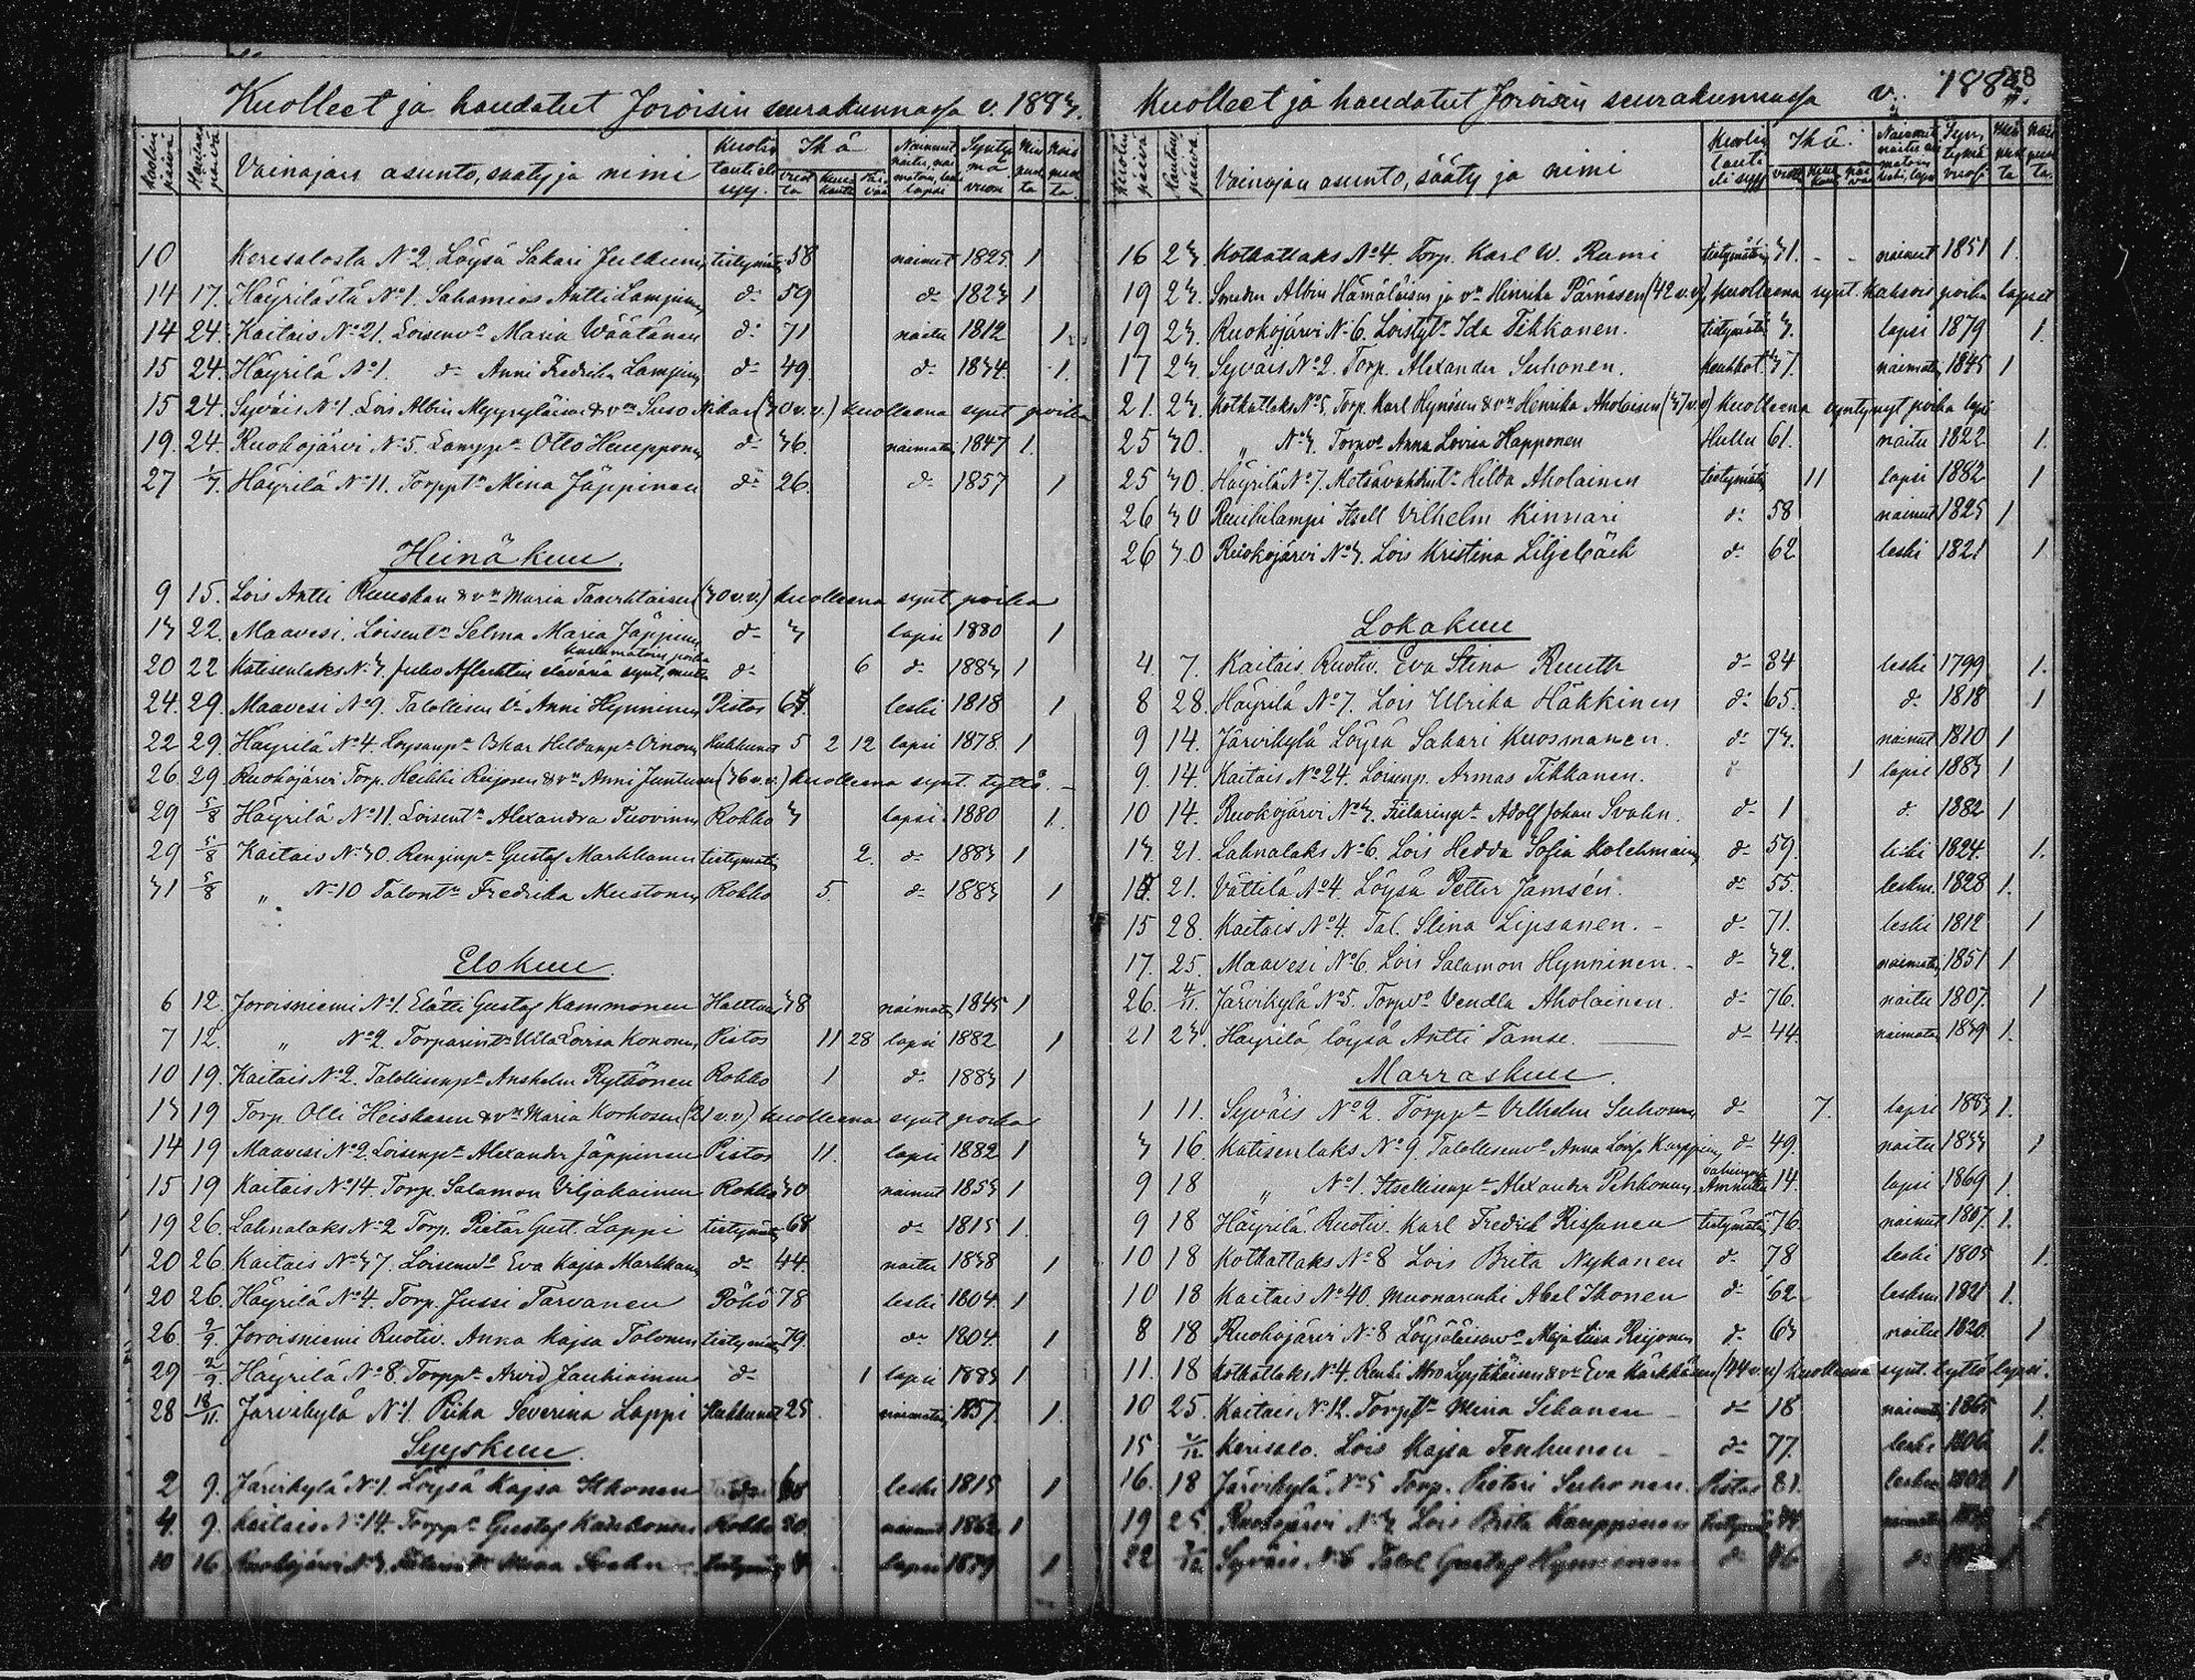 Kuolleet ja haudatut Joroisin seurakunnassa v. 1883.
Kuolin päivä Hautaus päivä Vainajan asunto, sääty ja nimi Kuolin tauti eli syy. Ikä vuotta kuukautta päivää Nainnut, naitu, naimaton, leski, lapsi Syntymä vuosi Mies puolta Nais puolta
10 Kerisalosta No 2. Löysä Sakari Julkunen tietymätön 58 nainut 1825 1
14 17. Häyrilästä No 1. Sahamies Antti Lampinen do 59 do 1823 1
14 24. Kaitais No 21. Loisenvo Maria Wäätänen do 71 naitu 1812 1
15 24. Häyrilä No 1. do Anni Fredrika Lampinen do 49. do 1834 1.
15 24. Syväis No 1. Lois Albin Myyryläisen & vm Suso Nikar (30 v.v.) kuolleena synt poika
19. 24. Ruokojärvi No 5. Otto Heupponen do 36. naimaton 1847 1.
27 1/7. Häyrilä No 11. Torppt Mina Jäppinen do 26. do 1857 1
Heinäkuu.
9 15. Lois Antti Ruuskan & vm Maria (30 v.v.) kuolleena synt poika
13 22. Maavesi. Loisent Selma Maria Jäppinen do 3 lapsi 1880 1
kastamaton poika
20 22 Katisenlaks No 3. Juho elävänä synt, mutta do 6 do 1883 1
24. 29. Maavesi No 9. Talollisen lo Anni Hynninen Pistos 65. leski 1818 1
22 29. Häyrilä No 4. Oskar Oinonen 5 2 12 lapsi 1878. 1
26. 29 Ruokojärvi Torp. Heikki Reijosen & vm Anni Juntunen (36 v.v.) kuolleena synt. tyttö. -
29 5/8 Häyrilä No 11. Loisent Alexandra Tuovinen Rokko 3 lapsi 1880 1.
29 5/8 Kaitais No 30. Renginp Gustaf Markkanen tietymätön 2. do 1883 1
31 5/8 " No 10 Talont Fredrika Mustonen Rokko 5. do 1883 1
Elokuu.
6 12. Joroisniemi No 1. Elätti Gustaf Kammonen 38 naimaton 1845 1
7 12. " No 2. Torparint Ulla Lovisa Kononen Pistos 11 28 lapsi 1882 1
10 19. Kaitais No 2. Talollisenp Anshelm Rytkönen Rokko 1 do 1883 1
13 19 Torp. Olli Heiskasen & vm Maria Korhosen (21 v.v) kuolleena synt poika
14 19 Maavesi No 2. Loisenp Alexander Jäppinen Pistos 11. lapsi 1882 1
15 19 Kaitais No 14. Torp. Salamon Viljakainen Rokko 30 nainut 1853 1
19 26. Lahnalaks No 2 Torp. Pietär Gust. Lappi tietymätön 68 do 1815 1.
20 26. Kaitais No 37. Loisenvo Eva Kajsa Markkanen do 44. naitu 1838 1
20 26. Häyrilä No 4. Torp. Jussi Tarvanen Pöhö 78 leski 1804. 1
26. 2/9. Joroisniemi Ruotiv. Anna Kajsa Tolonen tietymätön 79. do 1804. 1
29 2/9. Häyrilä No 8. Torpp Arvid Jauhiainen do 1 lapsi 1883 1
28 18/11. Järvikylä No 1. Piika Severina Lappi 25 naimaton 1857. 1.
Syyskuu.
2 9. Järvikylä No 1. Löysä Kajsa Ikkonen do 68 leski 1815 1
4. 9. Kaitais No 14. Torpp Gustaf Rokko 20. nainut 1862 1
10 16 Ruokojärvi No 3. tietymätön 4 lapsi 1879 1
Kuolleet ja haudatut Joroisin seurakunnassa v. 1883.
Kuolin päivä Hautaus päivä Vainajan asunto, sääty ja nimi Kuolin tauti eli syy Ikä. Nainnut naitu naimaton leski, lapsi Syntymä vuosi Mies puolta Nais puolta.
16 23. Kotkatlaks No 4. Torp. Karl W. Rumi tietymätön 31. - - nainut 1851 1.
19 23. Smeden Albin Hämäläisen ja vm Henrika Pärnäsen (42 v.v), kuolleena synt. kaksois poika lapset
19 23. Ruokojärvi No 6. Loistyt Ida Tikkanen. tietymätön 3. lapsi 1879 1.
17 23. Syväis No 2. Torp. Alexander Suhonen. Keuhkot 37. naimaton 1845 1
21. 23. Kotkatlaks No 5. Torp. Karl Hynösen & vm Henrika Aholaisen (37 v.v) kuolleena syntynyt poika lapsi
25 30. " No 3. Torpvo Anna Lovisa Happonen Hullu 61. naitu 1822 1.
25 30. Häyrilä No 7. Metsävahdint Hilda Aholainen tietymätön 11 lapsi 1882 1
26 30 Ruuhilampi Itsell Vilhelm Kinnari do 58 nainut 1825 1
26 30 Ruokojärvi No 3. Lois Kristina Liljebäck do 62 leski 1821 1
Lokakuu
4. 7. Kaitais. Ruotiv. Eva Stina Ruuth do 84 leski 1799 1.
8 28. Häyrilä No 7. Lois Ulrika Häkkinen do 65. do 1818 1
9 14. Järvikylä Löysä Sakari Kuosmanen. do 73. nainut 1810 1
9. 14. Kaitais No 24. Loisenp. Armas Tikkanen. do 1 lapsi 1883 1
10 14. Ruokojärvi No 3. Adolf Johan Svahn. do 1 do 1882 1
13. 21. Lahnalaks No 6. Lois Hedda Sofia Kolehmainen do 59. leski 1824. 1.
14. 21. Vättilä No 4. Löysä Petter Jamsén. do 55. leskm. 1828 1.
15 28. Kaitais No 4. Tal. Stina Lipsanen. - do 71. leski 1812 1
17. 25. Maavesi No 6. Lois Salamon Hynninen. - do 32. naimaton 1851 1
26. 4/11. Järvikylä No 5. Torpvo Vendla Aholainen. do 76. naitu 1807. 1
21 23. Häyrilä, löysä Antti Tamse. do 44. naimaton 1839 1.
Marraskuu.
1 11. Syväis No 2. Torpp Vilhelm Suhonen do 7. lapsi 1883 1.
3 16. Katisenlaks No 9. Talollisenvo Anna Lovisa Karppinen do 49. naitu 1833 1
9 18 " No 1. Itsellisenp Alexander Pekkonen 14. lapsi 1869 1.
9 18 Häyrilä. Ruotiv. Karl Fredrik Rissanen tietymätön 76. nainut 1807. 1.
10 18 Kotkatlaks No 8 Lois Brita Nykanen do 78 leski 1805 1.
10 18 Kaitais No 40. Muonarenki Abel Ikonen do 62. leskm 1821 1.
8 18 Ruokojärvi No 8 Löysäläisenvo Maja Liisa Reijonen do 63 naitu 1820. 1
11. 18 Kotkatlaks No 4. Renki (44 v.v) kuolleena synt. tyttö lapsi.
10 25. Kaitais No 12. Torpt Mina Sihonen do 18 naimaton 1865 1.
15 2/12 Kerisalo. Lois Kajsa Tenhunen - do 77. leski 1806 1.
16. 18 Järvikylä No 5 Torp. Pietari Suhonen. Pistos 81. leskm 1802 1
19 25. Ruokojärvi No 3 Lois Brita Kauppinen tietymätön
22 Syväis No 6 Talol Gustaf Hynninen do